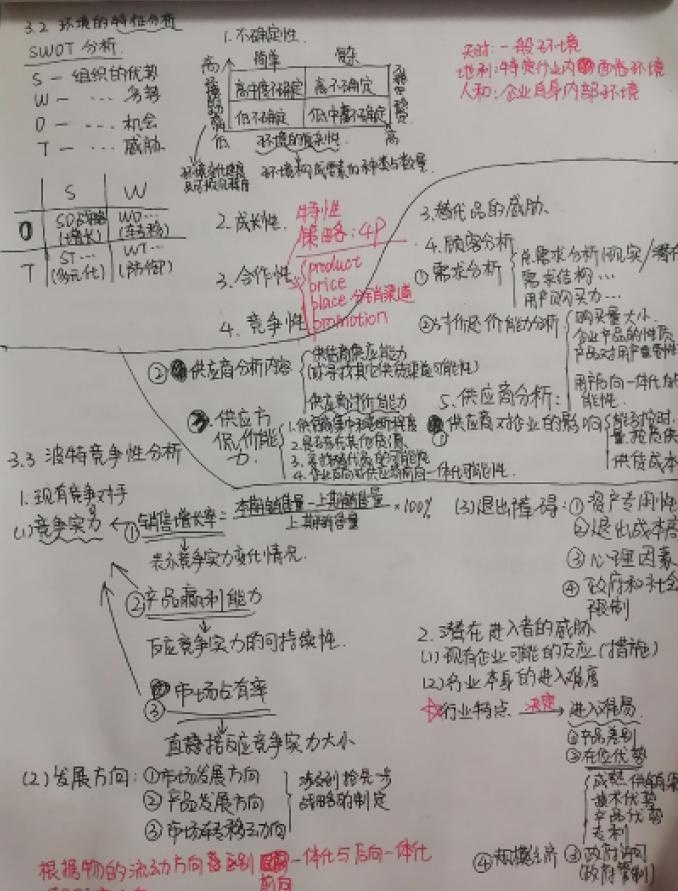 3.2 环境的特征分析
SWOT 分析.
S - 组织的优势
W - ··· 劣势
O - ··· 机会
T - ··· 威胁
S W
O SO战略(增长) WO···
T ST···(多元化) WT···(防御)
1. 不确定性.
简单 复杂
高
高中度不确定 高不确定
低不确定 低中高不确定
低 环境的复杂性. 高
环境构成要素的种类与数量.
天时: 一般环境
地利: 特定行业内
人和: 企业自身内部环境
2. 成长性.
3. 合作性
4. 竞争性
特性
策略: 4P
product
price
place 分销渠道
promotion
3. 替代品的威胁.
4. 顾客分析
① 需求分析
总需求分析(现实/潜在
需求结构···
用户购买力···
②讨价还价能力分析
购买量大小.
企业产品的性质
产品对用户重要性
用户后向一体化可
能性.
5. 供应商分析:
① 供应商对企业的影响
能否按时.
供货成本
② 供应商分析内容
供给商供应能力
(或寻找其它供货渠道可能性)
供应商讨价能力
供应方
价能
力.
2. 是否存在其他货源.
3. 寻找替代品的可能性
4. 企业后向或供应商前向一体化可能性.
3.3 波特竞争性分析
1. 现有竞争对手
(1) 竞争实力
① 销售增长率 = 本期销售量 - 上期销售量 / 上期销售量 × 100%
表示竞争实力变化情况.
② 产品赢利能力
反应竞争实力的可持续性.
③ 市场占有率
直接反应竞争实力大小
(2) 发展方向: ① 市场发展方向
② 产品发展方向
③ 市场转移动向
涉及到抢先一步
战略的制定
(3) 退出障碍: ① 资产专用性
② 退出成本高
③ 心理因素
④ 政府和社会
限制
2. 潜在进入者的威胁
(1) 现有企业可能的反应(措施)
(2) 行业本身的进入难度
☆行业特点 决定 进入难易.
① 产品差别
② 在位优势
成熟供销渠
技术优势
产品优势
专利
③ 政府许可
(政府管制)
④ 规模经济
根据物的流动方向 区别 一体化与后向一体化
前向